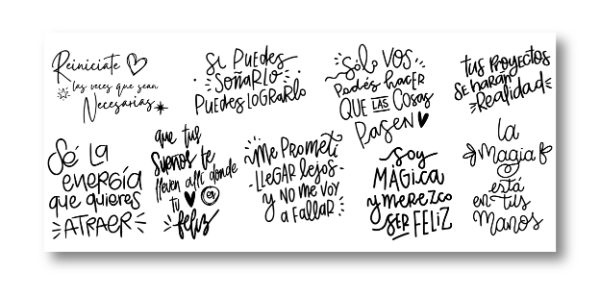 Reiniciate
las veces que sean
Necesarias
Si PUEDES
SOÑARLO
PUEDES LOGRARLO
Sólo VOS
Podés hacer
QUE LAS COSAS
PASEN
tus PROYECTOS
SE HARÁN
Realidad
Sé LA
energía
que quieres
ATRAER
que tus
Sueños te
lleven allí donde
tú
es
feliz
Me Prometí
LLEGAR lejos
y NO ME VOY
a FALLAR
SOY
MÁGICA
y merezco
SER FELIZ
la
Magia
está
en tus
Manos